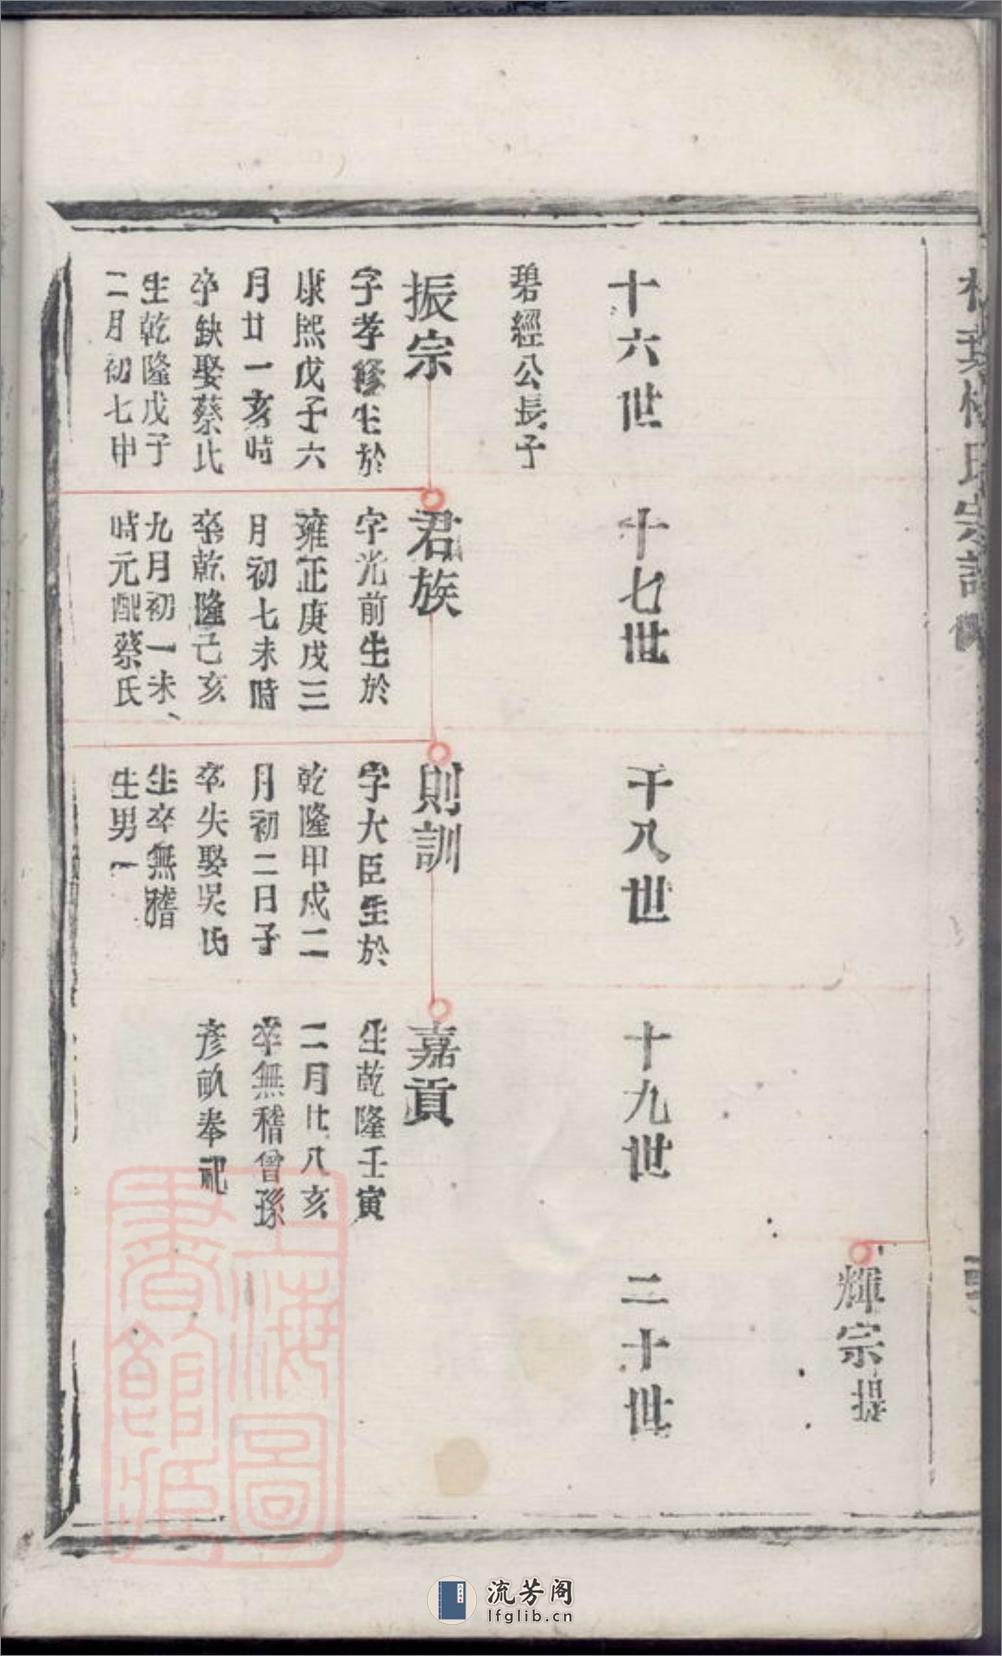 氏宗譜
輝宗提
十六世
十七世
十八世
十九世
二十世
碧經公長子
振宗
字孝修生於
康熙戊子六
月廿一亥時
卒缺娶蔡氏
生乾隆戊子
二月初七申
君族
字光前生於
雍正庚戌三
月初七未時
卒乾隆己亥
九月初一未
時元配蔡氏
則訓
字大臣生於
乾隆甲戌二
月初二日子
卒失娶吳氏
生卒無稽
生男一
嘉貢
生乾隆壬寅
二月廿八亥
卒無稽曾孫
彦畝奉祀
上海圖
書館藏
流芳阁
lfglib.cn